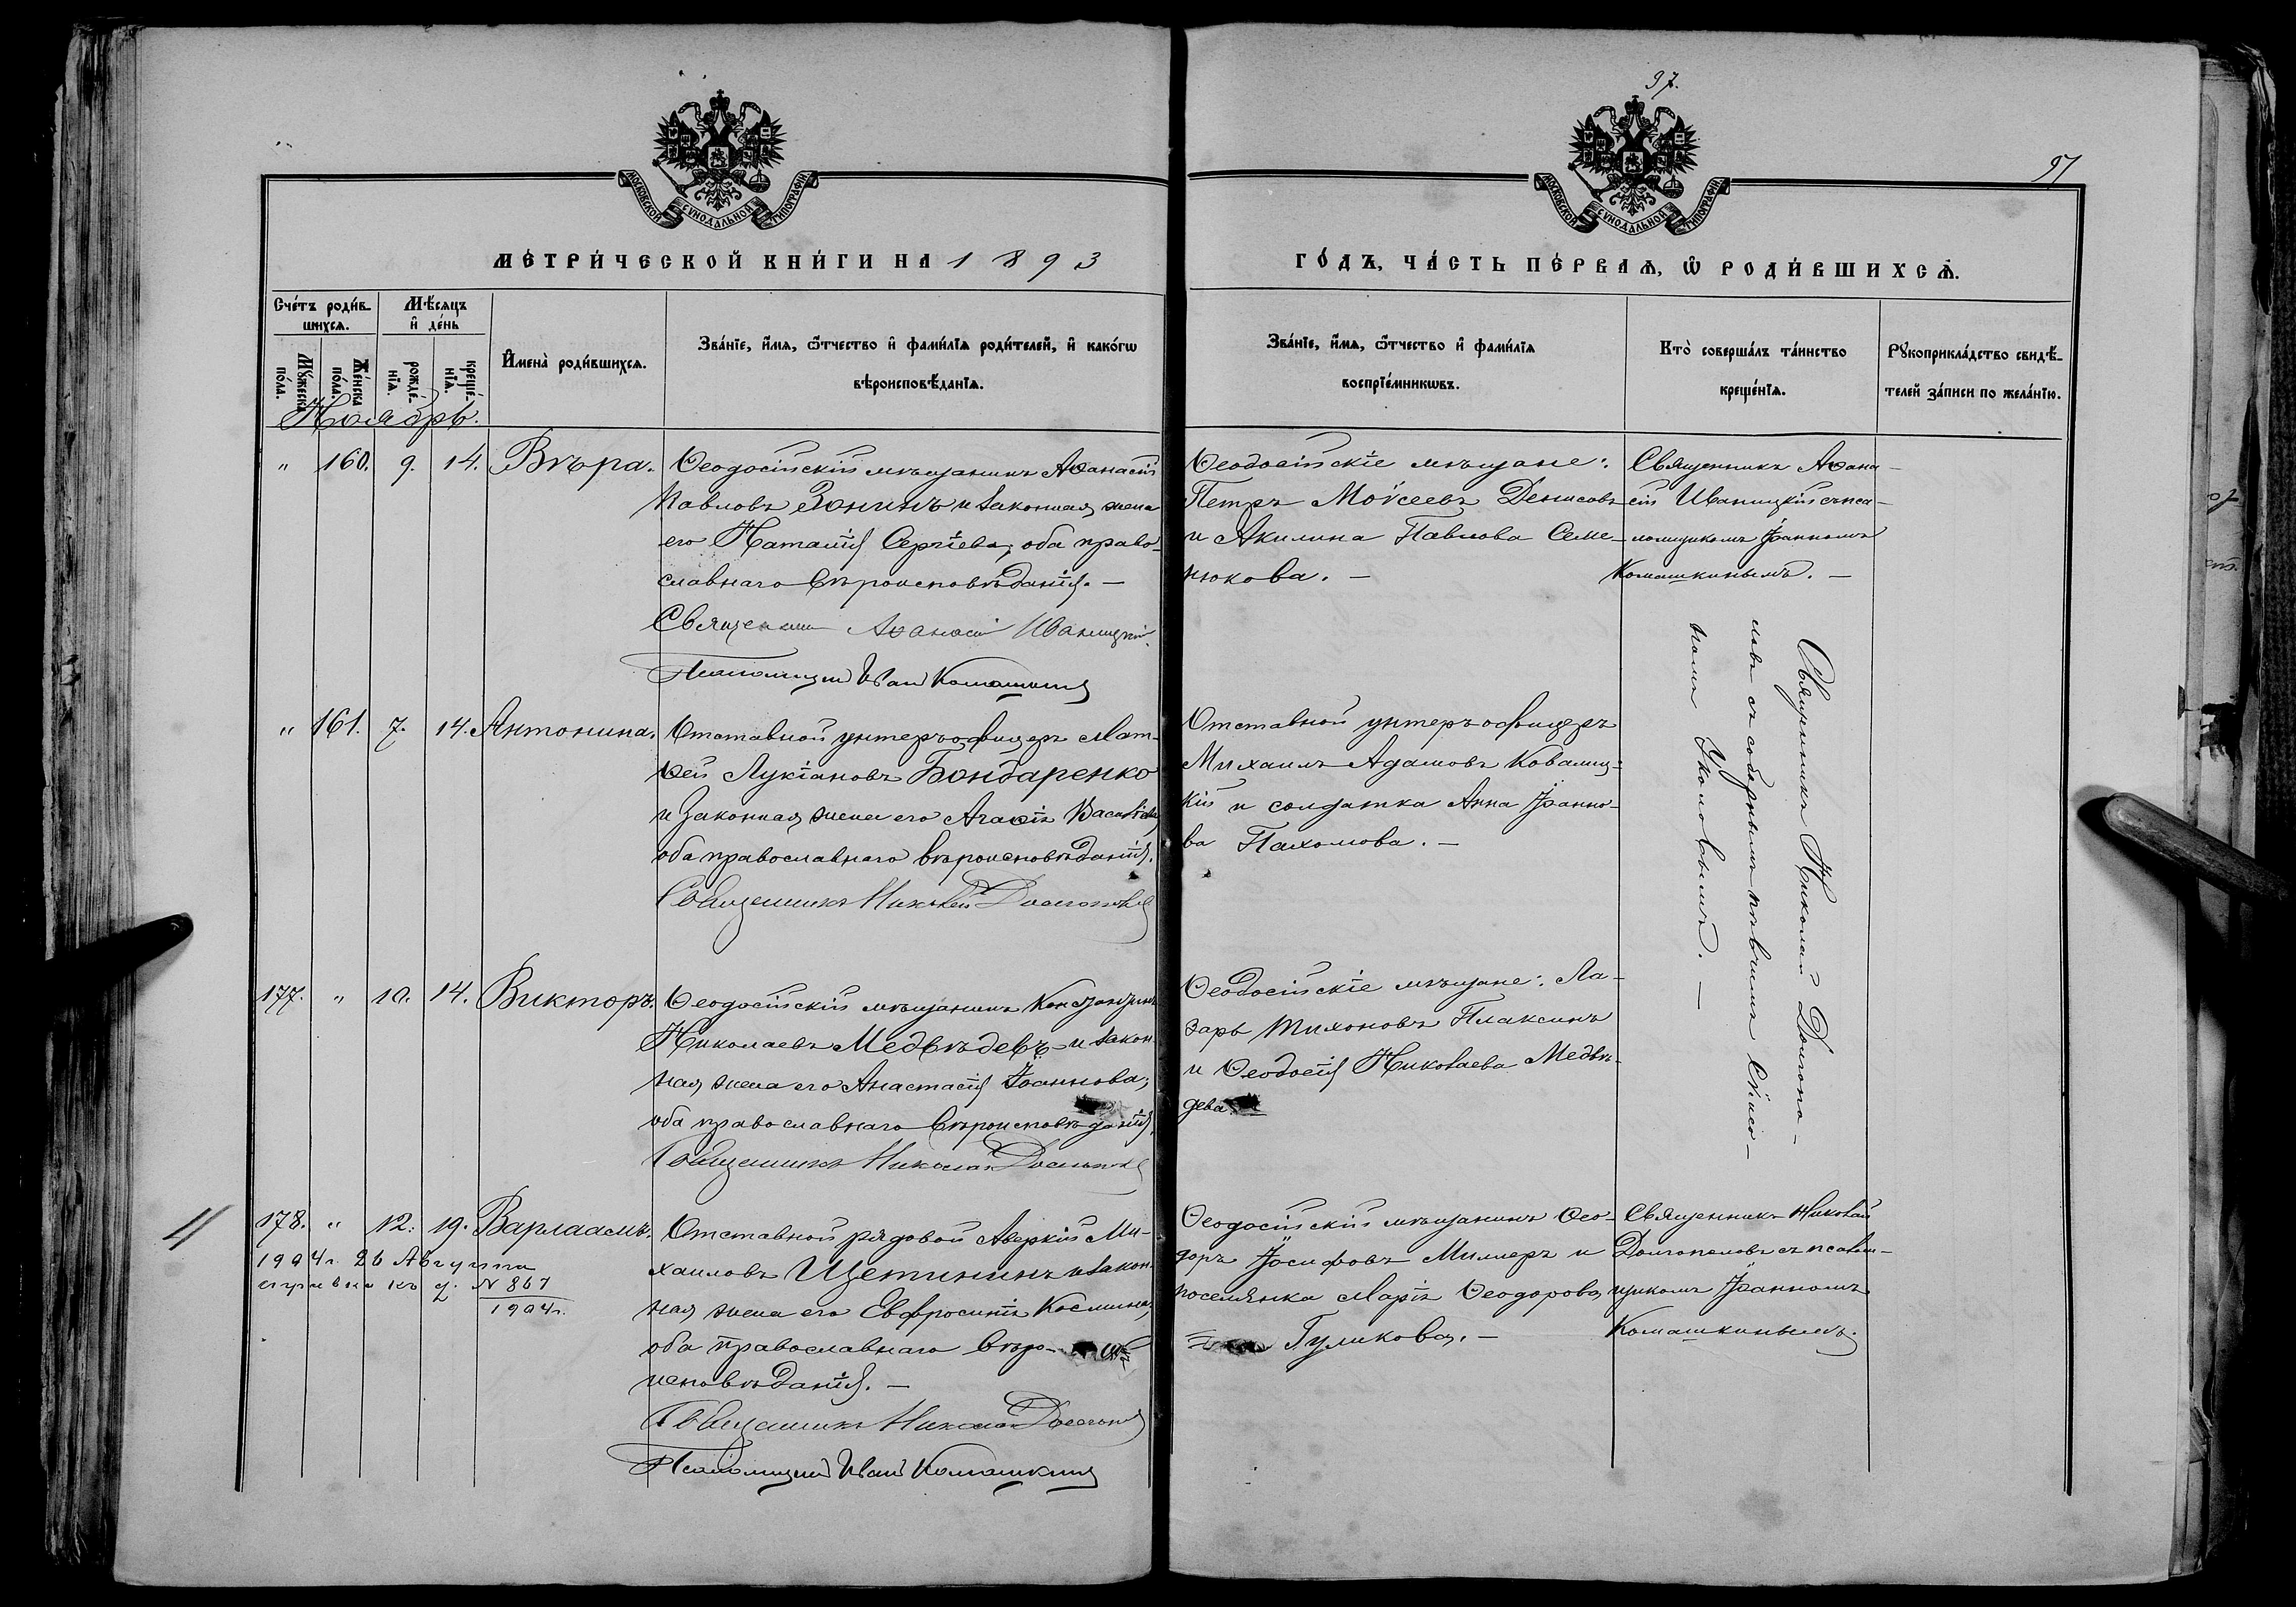 97.
97
МОСКОВСКОЙ СѴНОДАЛЬНОЙ ТИПОГРАФІИ
МОСКОВСКОЙ СѴНОДАЛЬНОЙ ТИПОГРАФІИ
МЕТРИ́ЧЕСКОЙ КНИ́ГИ НА 1893
ГО́ДЪ, ЧА́СТЬ ПЕ́РВАѦ, Ѽ РОДИ́ВШИХСѦ.
Сче́тъ роди́в-
шихсѧ.
Мѣ́сяцъ
и҆ де́нь
Мꙋ́жеска
по́ла.
Же́нска
по́ла.
рожде́-
нїѧ.
креще́-
нїѧ.
И҆мена̀ роди́вшихсѧ.
Зва́нїе, и҆́мѧ, ѻ҆́тчество и҆ фами́лїѧ роди́телей, и҆ како́гѡ
вѣроисповѣ́данїѧ.
Зва́нїе, и҆́мѧ, ѻ҆́тчество и҆ фами́лїѧ
воспрїе́мникѡвъ.
Кто̀ соверша́лъ та́инство
креще́нїѧ.
Рꙋкоприкла́дство свидѣ́-
телей за́писи по жела́нїю.
Ноябрь.
" 160. 9. 14. Вѣра.
Ѳеодосійскій мѣщанинъ Аѳанасій
Павловъ Зонинъ и законная жена
его Наталія Сергіева, оба право-
славнаго вѣроисповѣданія. —
Священник Аѳанасій Иваницкій
Псаломщик Иван Комашкинъ
Ѳеодосійскіе мѣщане:
Петръ Моѵсеевъ Денисовъ
и Акилина Павлова Семе-
нюкова. —
Священникъ Аѳана-
сій Иваницкій съ пса-
ломщикомъ Іоанномъ
Комашкинымъ. —
" 161. 7. 14. Антонина.
Отставной унтеръ-офицеръ Мат-
ѳей Лукіановъ Бондаренко
и законная жена его Агаѳія Василіева
оба православнаго вѣроисповѣданія.
Священникъ Николай Долгополовъ
Отставной унтеръ-офицеръ
Михаилъ Адамовъ Ковалиц-
кій и солдатка Анна Іоанно-
ва Пахомова. —
Священникъ Николай Долгопо-
ловъ съ соборнымъ пѣвчимъ
177. " 10. 14. Викторъ.
Ѳеодосійскій мѣщанинъ Константинъ
Николаевъ Медвѣдевъ и закон-
ная жена его Анастасія Іоаннова,
оба православнаго вѣроисповѣданія
Священникъ Николай Долгополовъ
Ѳеодосійскіе мѣщане: Ла-
зарь Тихоновъ Плаксинъ
и Ѳеодосія Николаева Медвѣ-
дева.
178. " 12. 19. Варлаамъ.
1904 г. 26 Августа
справка къ д. N 867
1904 г.
Отставной рядовой Аверкій Ми-
хаиловъ Щетининъ и закон-
ная жена его Евфросинія Космина,
оба православнаго вѣро-
исповѣданія. —
Священникъ Николай Долгополовъ
Псаломщик Иван Комашкинъ
Ѳеодосійскій мѣщанинъ Ѳео-
доръ Іосифовъ Миллеръ и
поселянка Марія Ѳеодорова
Гуликова. —
Священникъ Николай
Долгополовъ съ псалом-
щикомъ Іоанномъ
Комашкинымъ.